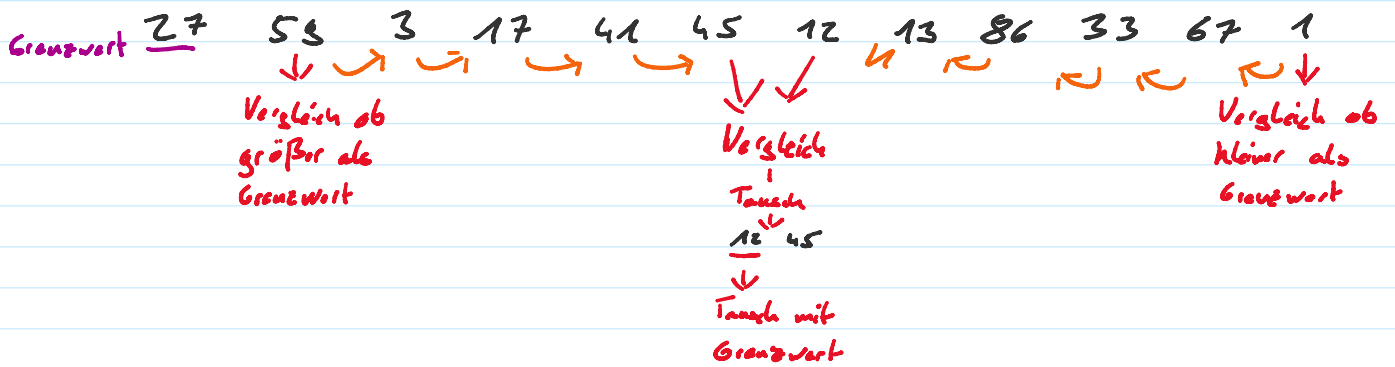 Grenzwert 27 53 3 17 41 45 12 13 86 33 67 1
Vergleich ob
größer als
Grenzwert
Vergleich
Tausch
12 45
Tausch mit
Grenzwert
Vergleich ob
kleiner als
Grenzwert